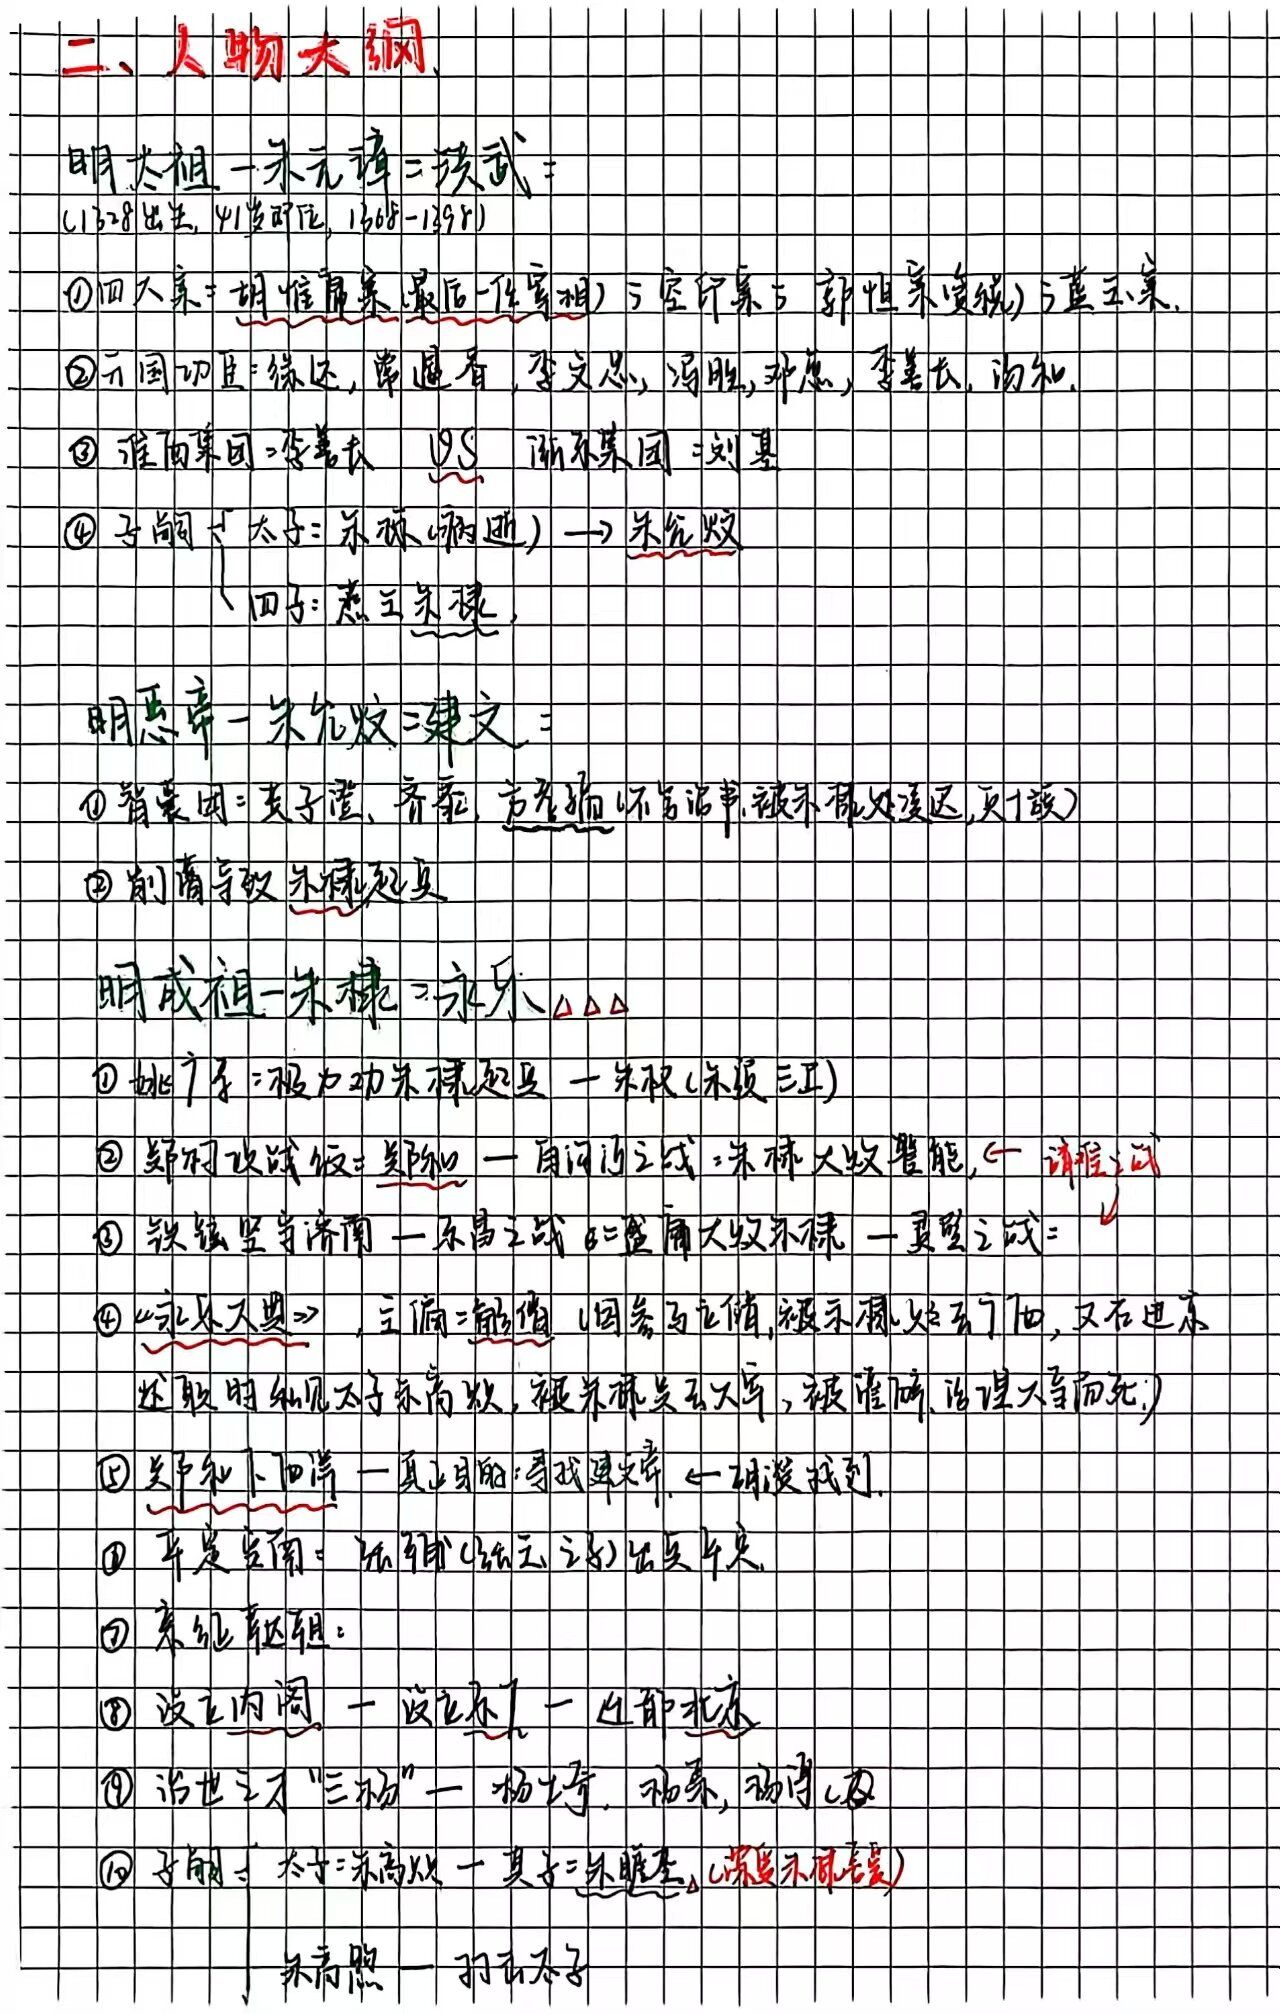 二、人物大纲
明太祖—朱元璋=洪武:
(1328出生,41岁即位,1368-1398)
①四大案:胡惟庸案(最后一任宰相);空印案;郭恒案(贪统);蓝玉案.
②开国功臣:徐达,常遇春,李文忠,冯胜,邓愈,李善长,汤和.
③淮西集团:李善长 VS 浙东集团:刘基
④子嗣 太子:朱标(病逝)→朱允炆
四子:燕王朱棣.
明惠帝—朱允炆=建文:
①智囊团:黄子澄、齐泰、方孝孺(不写诏书,被朱棣处凌迟,灭十族)
②削藩导致朱棣起兵
明成祖—朱棣=永乐 △△△
①姚广孝:极力劝朱棣起兵—朱权(朵颜三卫)
②郑村坝战役:郑和—白沟河之战:朱棣大败瞿能,← 靖难之战
③铁铉坚守济南—东昌之战:盛庸大败朱棣—灵璧之战:
④《永乐大典》,主编:解缙(因参与立储,被朱棣处去广西,又在进京
述职时私见太子朱高炽,被朱棣关去大牢,被灌醉,活埋大雪而死.)
⑤郑和下西洋—真正目的:寻找建文帝.←胡濙找到.
⑥平定安南:张辅(张玉之子)出兵平定.
⑦亲征鞑靼:
⑧设立内阁—设立东厂—迁都北京
⑨治世之才"三杨"—杨士奇,杨荣,杨溥
⑩子嗣: 太子:朱高炽—其子:朱瞻基△(深受朱棣喜爱)
朱高煦—太子